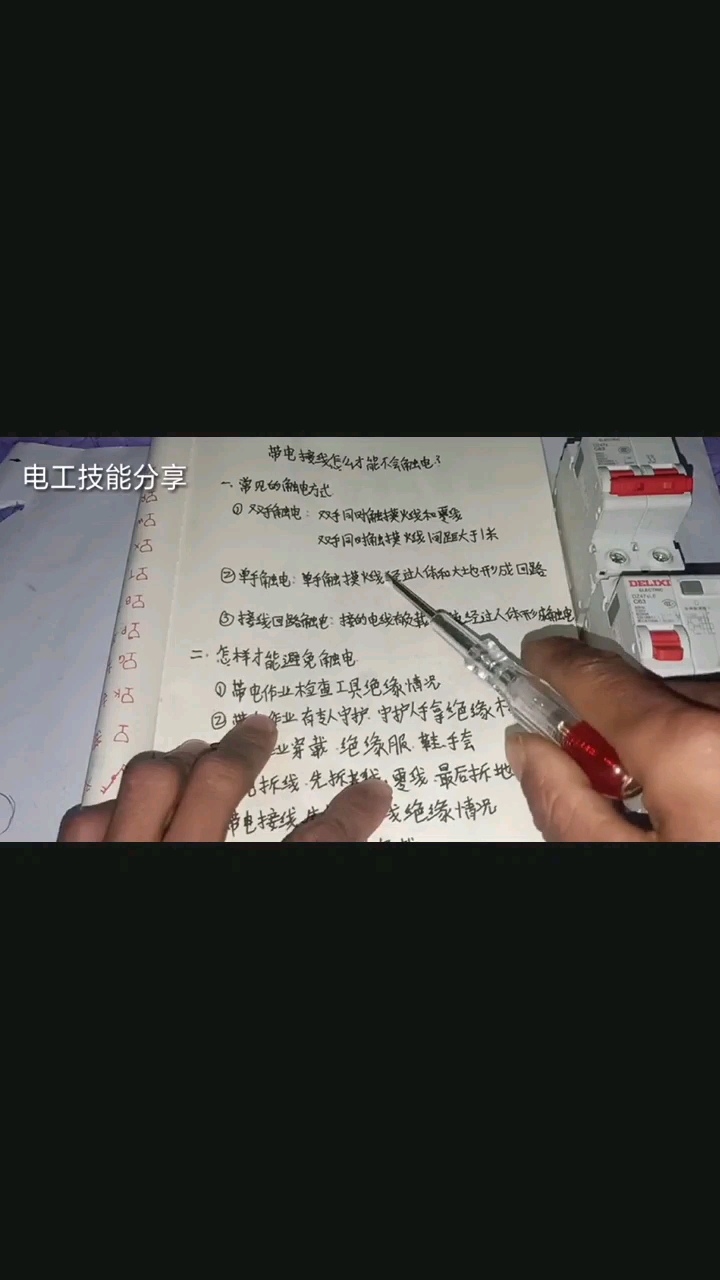 电工技能分享
带电接线怎么才能不会触电?
一.常见的触电方式
① 双手触电: 双手同时触摸火线和零线
双手同时触摸火线间距大于1米
② 单手触电: 单手触摸火线 经过人体和大地形成回路
③ 接线回路触电: 接的电线有负载 经过人体形成触电
二.怎样才能避免触电
① 带电作业检查工具绝缘情况
② 作业 有专人守护.守护人手拿绝缘
业穿载.绝缘服.鞋.手套
拆线.先拆火线.零线.最后拆地
带电接线 线绝缘情况
DELIXI
ELECTRIC
C63